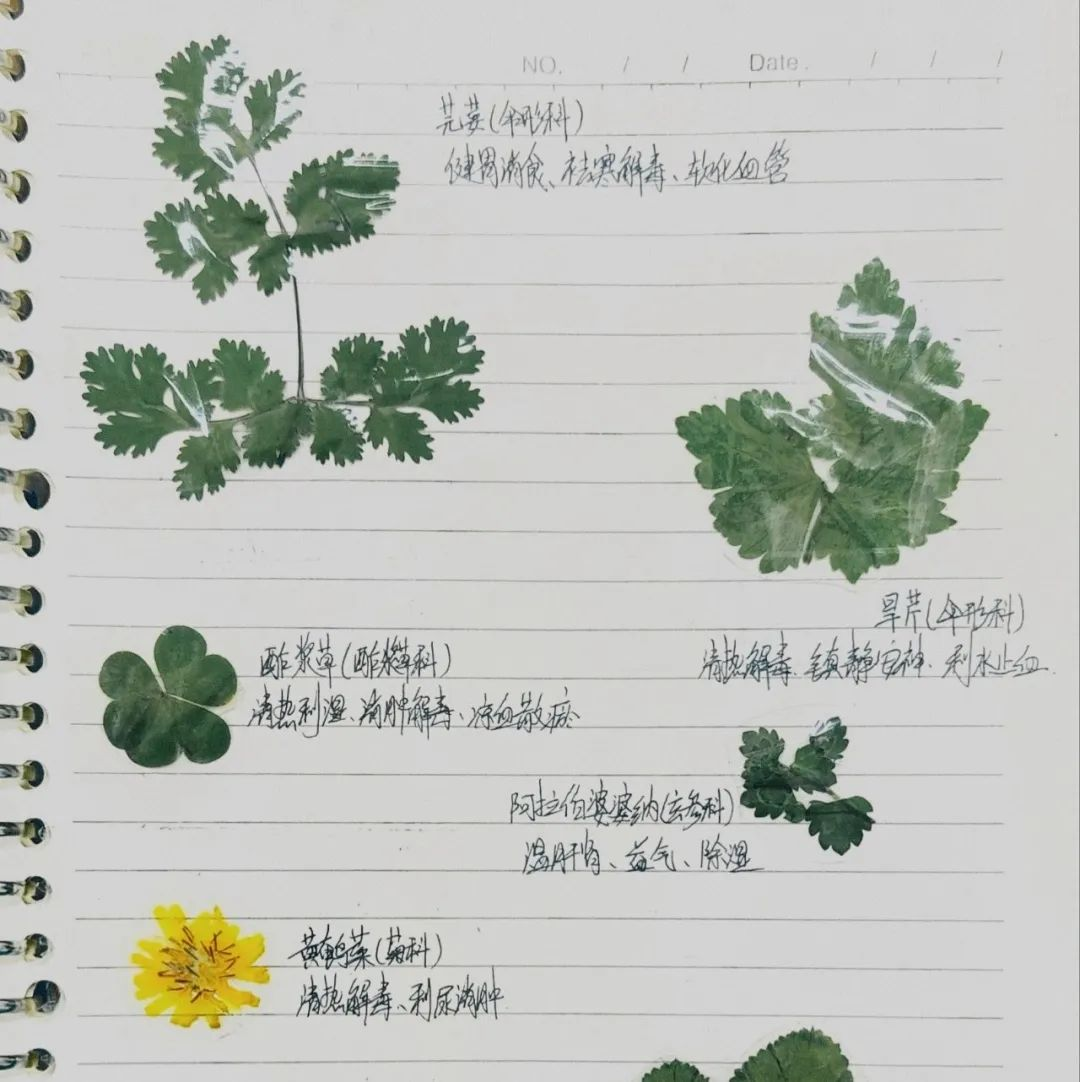 NO. / / Date. / / /
芫荽(伞形科)
健胃消食、祛寒解毒、软化血管
旱芹(伞形科)
清热解毒、镇静安神、利水止血
酢浆草(酢浆草科)
清热利湿、消肿解毒、凉血散瘀
阿拉伯婆婆纳(玄参科)
温肝肾、益气、除湿
黄鹌菜(菊科)
清热解毒、利尿消肿